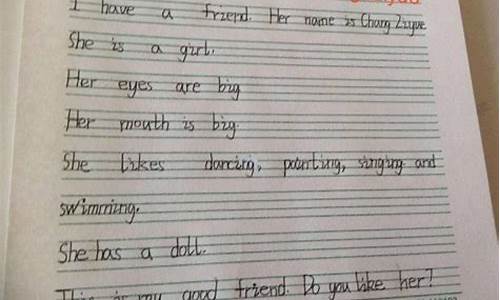 I have a friend. Her name is Chang Ziyue
She is a girl.
Her eyes are big
Her mouth is big.
She likes dancing, painting, singing and
swimming.
She has a doll.
This is my good friend. Do you like her?